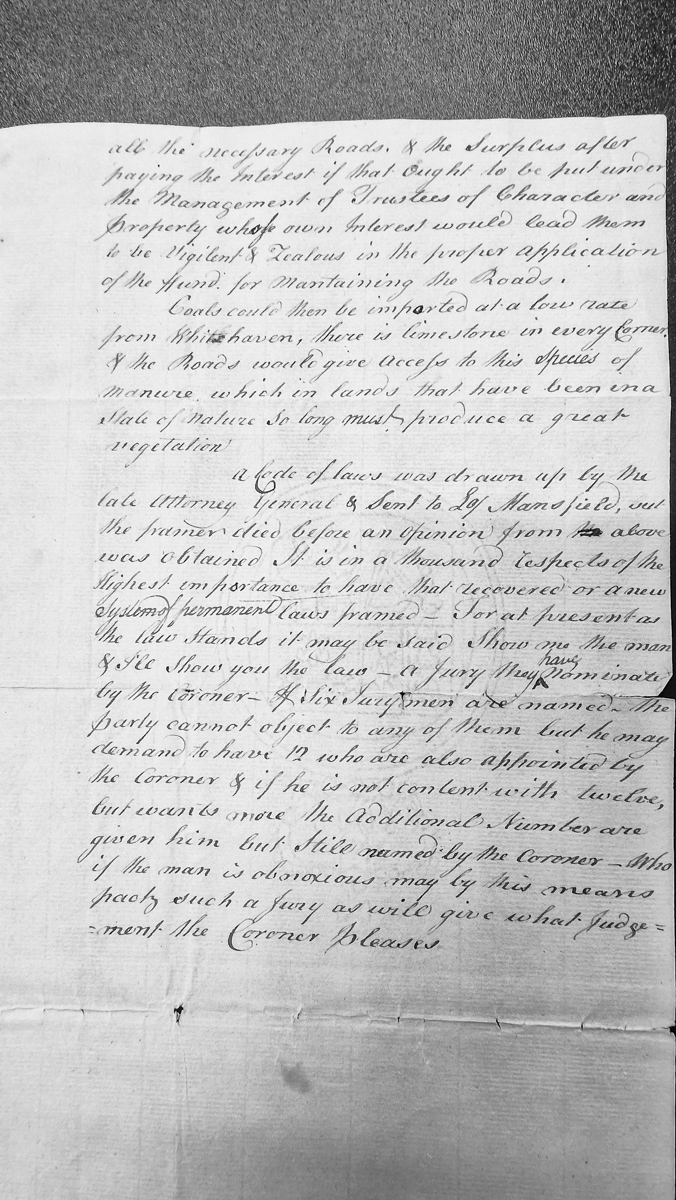 all the necessary Roads. & the Surplus after
paying the Interest if that ought to be put under
the Management of Trustees of Character and
Property whose own Interest would lead them
to be Vigilent & Zealous in the proper application
of the ffund. for Mantaining the Roads.
Coals could then be imported at a low rate
from Whitehaven, there is limestone in every Corner.
& the Roads would give access to this Species of
Manure which in lands that have been in a
State of Nature So long must produce a great
vegetation
A Code of laws was drawn up by the
late Attorney General & Sent to Lof Mansfield, but
the framer died before an Opinion from the above
was obtained It is in a thousand respects of the
Highest importance to have that recovered or a new
System of permanent laws framed — For at present as
the law Stands it may be said Show me the man
& I'le Show you the law — a Jury they have Nominate
by the Coroner — If Six Jurymen are named — the
party cannot object to any of them but he may
demand to have 12 who are also appointed by
the Coroner & if he is not content with twelve,
but wants more the Additional Number are
given him but Still named by the Coroner — Who
if the man is obnoxious may by this means
pack such a Jury as will give what Judge=
=ment the Coroner pleases